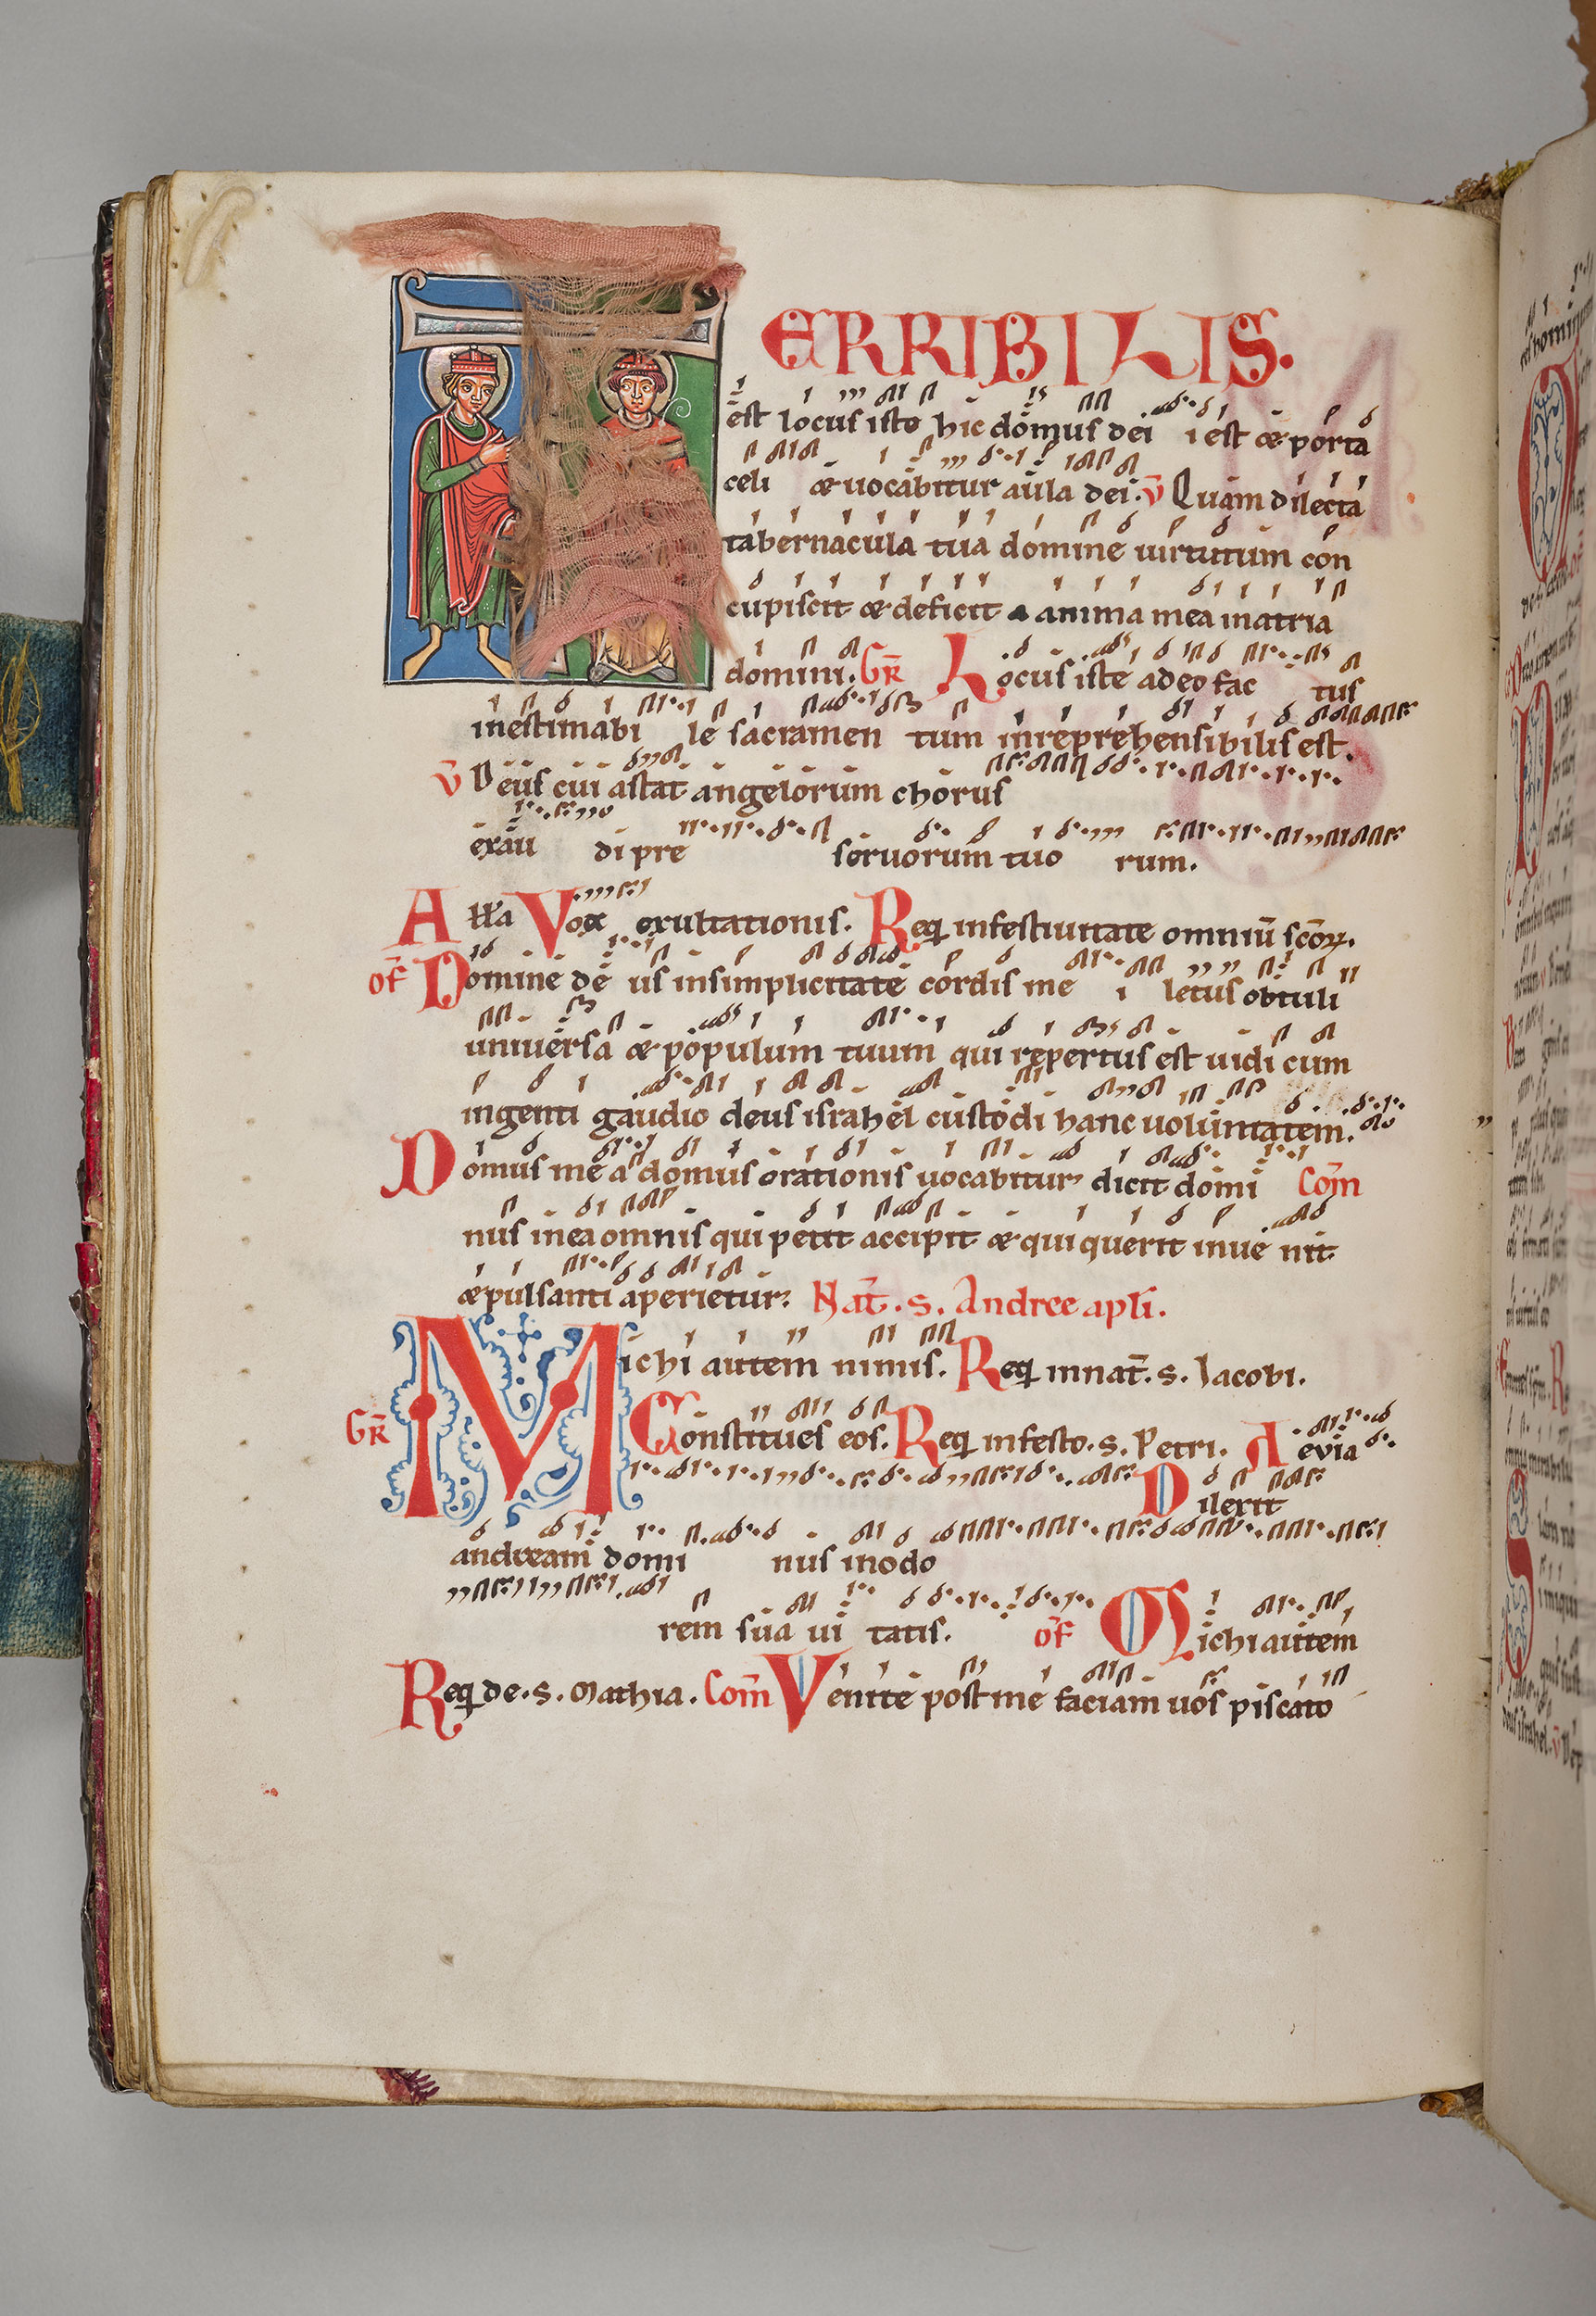 TERRIBILIS.
est locus iste hic domus dei i est & porta
celi & uocabitur aula dei. V̄ Quam dilecta
tabernacula tua domine uirtutum con
cupiscit & deficit anima mea in atria
domini. GR̄ Locus iste a deo fac tus
inestimabi le sacramen tum inreprehensibilis est.
V̄ Deus cui astat angelorum chorus
exau di pre seruorum tuo rum.
All'a Vox exultationis. Req infestiuitate omniū scōꝝ.
of̄ Domine de us insimplicitate cordis me i letus obtuli
uniuersa & populum tuum qui repertus est uidi cum
ingenti gaudio deus israhel custodi hanc uoluntatem.
Domus me a domus orationis uocabitur dicit domi Com̄
nus in ea omnis qui petit accipit & qui querit inue nit
& pulsanti aperietur. Nat̄. s. Andree apli.
Michi autem nimis. Req innat̄. s. Iacobi.
GR̄ Constitues eos. Req infesto. s. Petri. Aevia
Dilexit
andream domi nus inodo
rem sua ui tatis. of̄ Michi autem
Req de. s. Mathia. Com̄ Venite post me faciam uos piscato